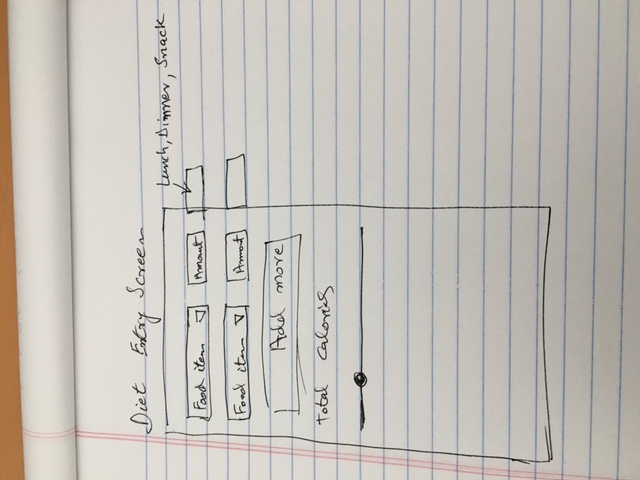 Diet Entry Screen
Lunch, Dinner, Snack
Food item Amount
Food item Amout
Add more
Total Calories